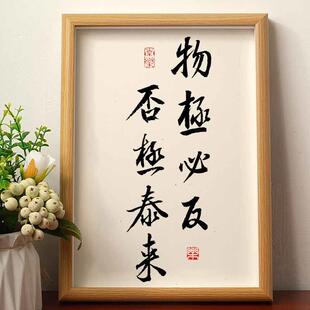 物極必反
否極泰来